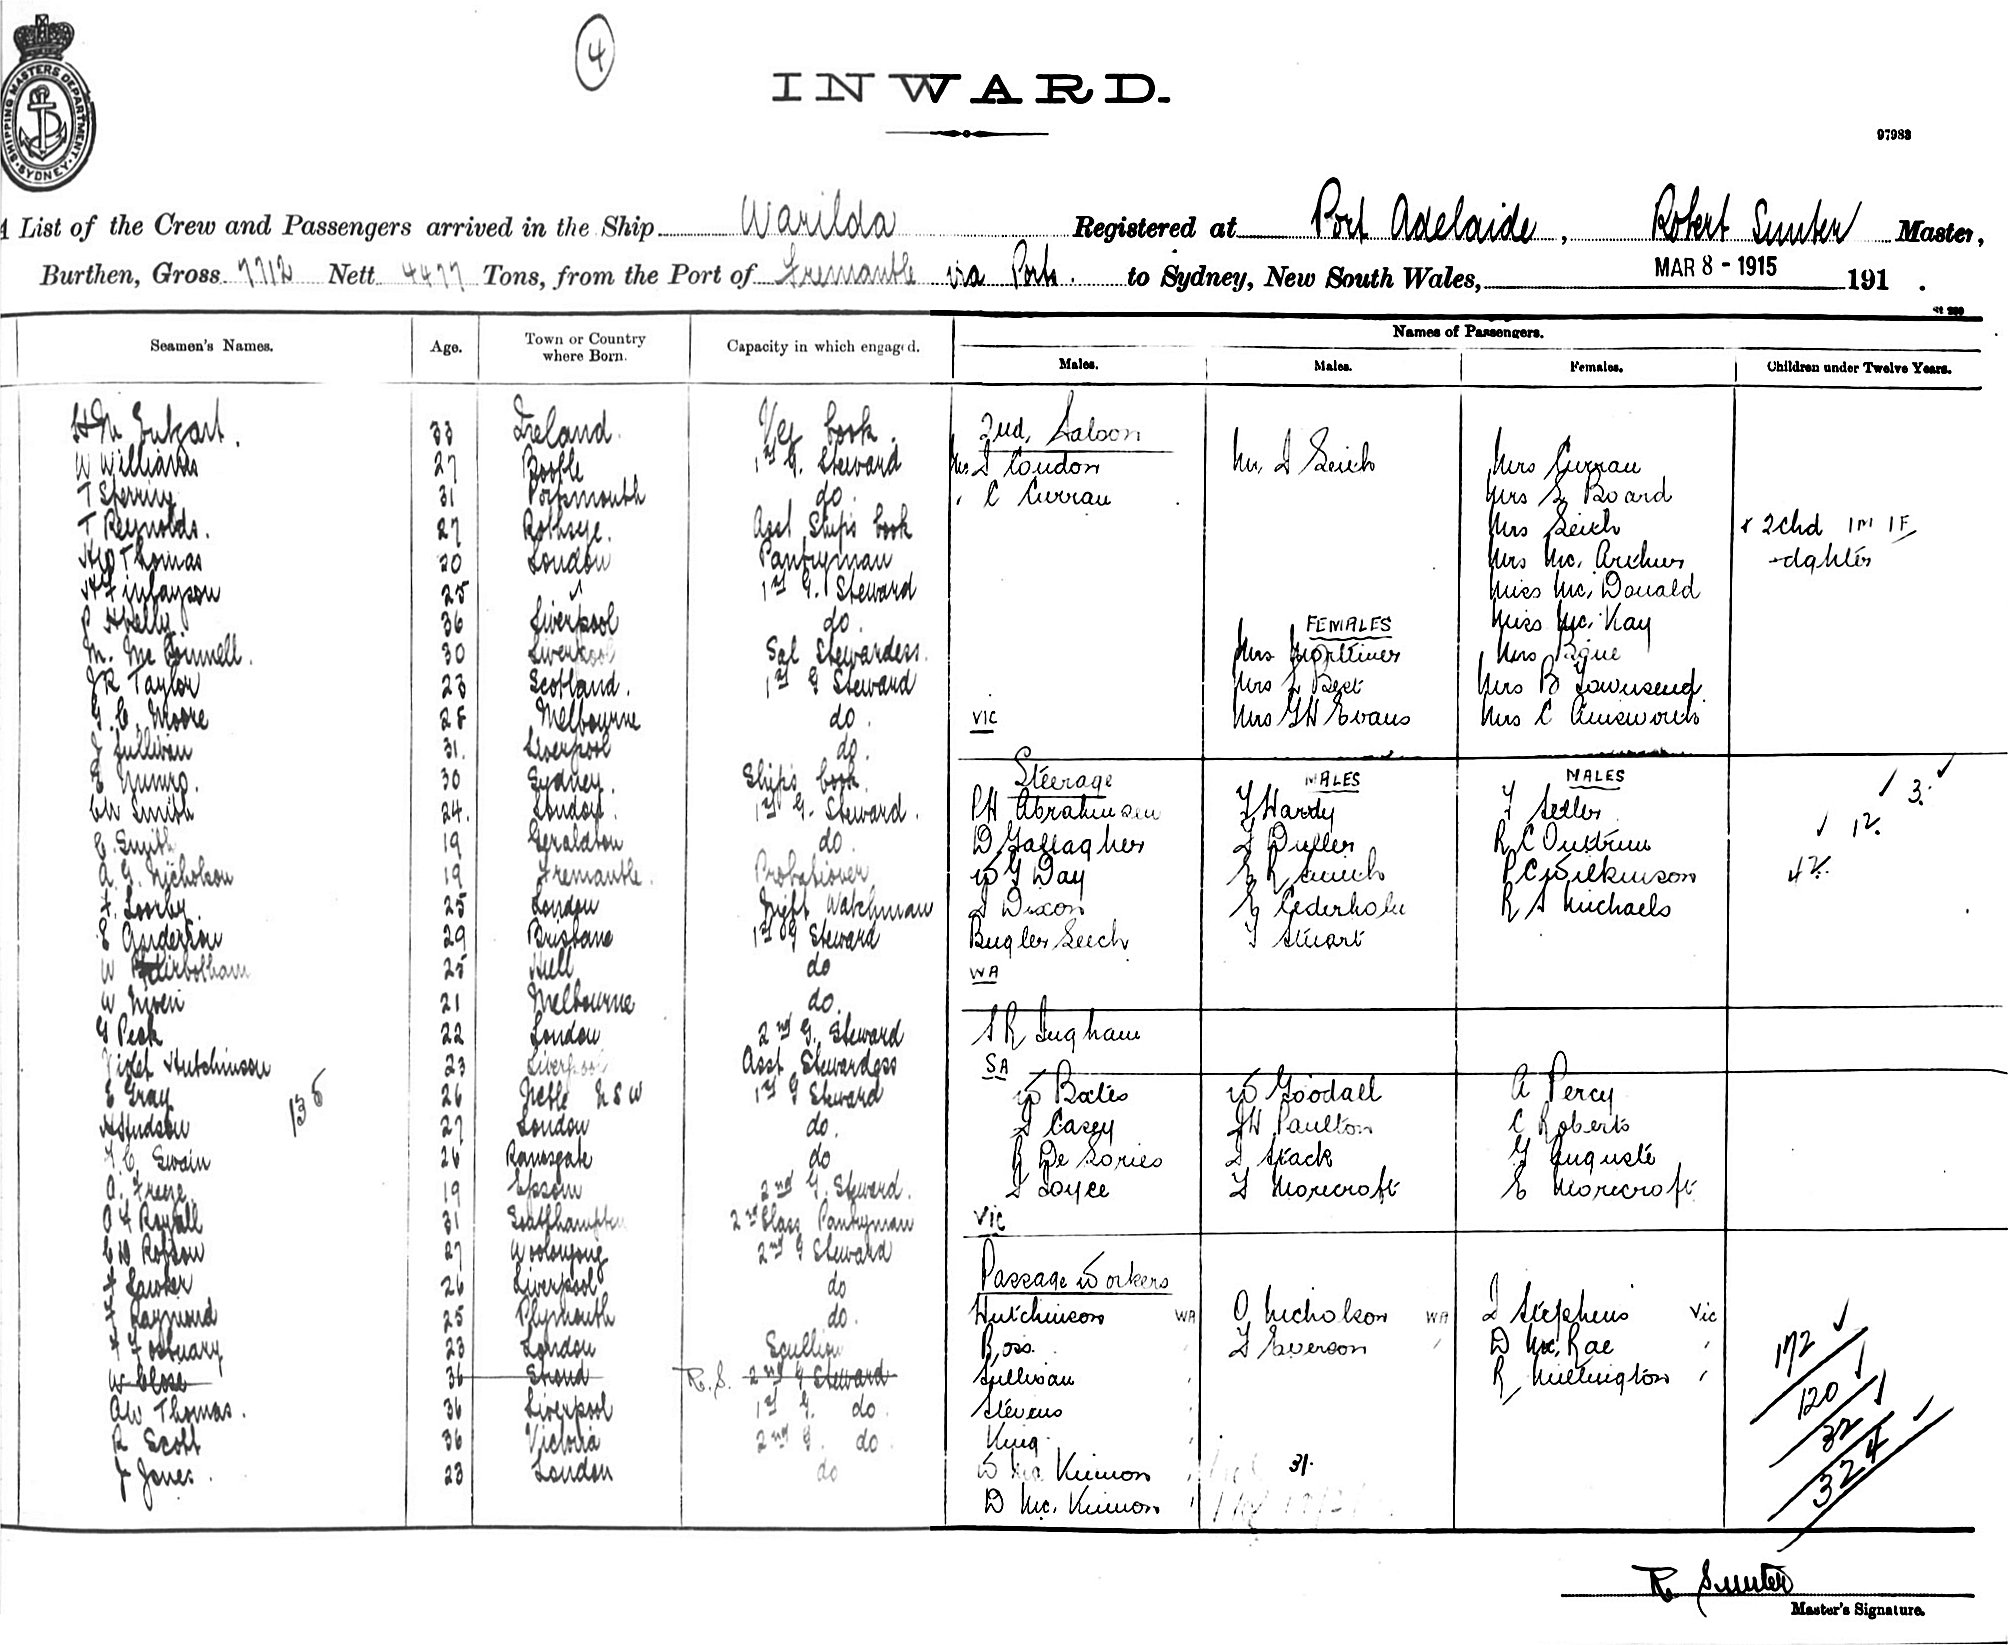 SHIPPING MASTERS DEPARTMENT
SYDNEY
4
INWARD.
97983
A List of the Crew and Passengers arrived in the Ship Warilda Registered at Port Adelaide, Robert Sunter Master,
Burthen, Gross 7712 Nett 4477 Tons, from the Port of Fremantle via Ports. to Sydney, New South Wales, MAR 8 - 1915 191 .
Names of Passengers.
Seamen's Names. Age. Town or Country where Born. Capacity in which engaged. Males. Males. Females. Children under Twelve Years.
33 Ireland. Veg Cook.
W Williams 27 Bootle 1st G. Steward
T Sperring 31 Portsmouth do.
T Reynolds. 27 Rothsye. Asst Ship's Cook
Thomas 20 London Pantryman
H Finlayson 25 " 1st G. Steward
P Abella 36 Liverpool do.
M. Mc Connell. 30 Liverpool Sal Stewardess.
JR Taylor 23 Scotland. 1st G Steward
G. C. Moore 28 Melbourne do.
J Sullivan 31. Liverpool do.
E Munro. 30 Sydney. Ship's Cook
CW Smith 24. London. 1st G. Steward.
E. Smith 19 Geraldton do.
A. G. Nicholson 19 Fremantle. Probationer
F. Loorby. 25 London Night Watchman
E Anderson 29 Brisbane 1st G Steward
W 25 Hull do
W Niven 21 Melbourne do.
G Peck 22 London 2nd G. Steward
Violet Hutchinson 23 Liverpool Asst Stewardess
E Gray 26 NSW 1st G Steward
138
A Hudson 27 London do.
Swain 26 Ramsgate do
A. Freeze 19 Epsom 2nd G. Steward.
A F Royall 31 Southhampton 2nd Class Pantryman
C W Robson 27 Woolongong 2nd G Steward
F Lawler 26 Liverpool do
F Raymond 25 Plymouth do.
F Fostuary 23 London Scullion
W Close 36 Stroud R.S. 2nd G Steward
AW Thomas. 36 Liverpool 1st G. do.
R Scott 36 Victoria 2nd G. do.
J Jones. 23 London do
2nd, Saloon
Mr J Coudon Mr. J Seich Mrs Curran
" C Curran Mrs E Board
Mrs Seich & 2 Chd 1M 1F
Mrs Mc. Archer - dghter
Miss Mc. Donald
FEMALES Miss Mc. Kay
Mrs Mortimer Mrs Pique
Mrs L Best Mrs B Townsend
VIC Mrs GH Evans Mrs C Ainsworth
Steerage MALES MALES 3.
PH Abrahamsen F Hardy F Seller 12.
D Gallagher J Duller R C Outtrim
W G Day E R Smith P C Wilkinson 42.
J Dixon E Cederholm R S Michaels
Bugler Seech F Stuart
WA
S R Ingham
SA
W Bates W Goodall A Percy
J Casey JH Paulton C Roberts
R De Sories J Stack G Auguste
J Joyce F Morecroft E Morecroft
VIC
Passage Workers
Hutchinson WA O Nicholson WA J Stephens Vic
Ross J Everson " D Mc. Rae "
Sullivan " R Millington "
Stevens "
King "
W Mc Kinnon " 31.
D Mc. Kinnon "
172
120
32
324
R. Sunter
Master's Signature.